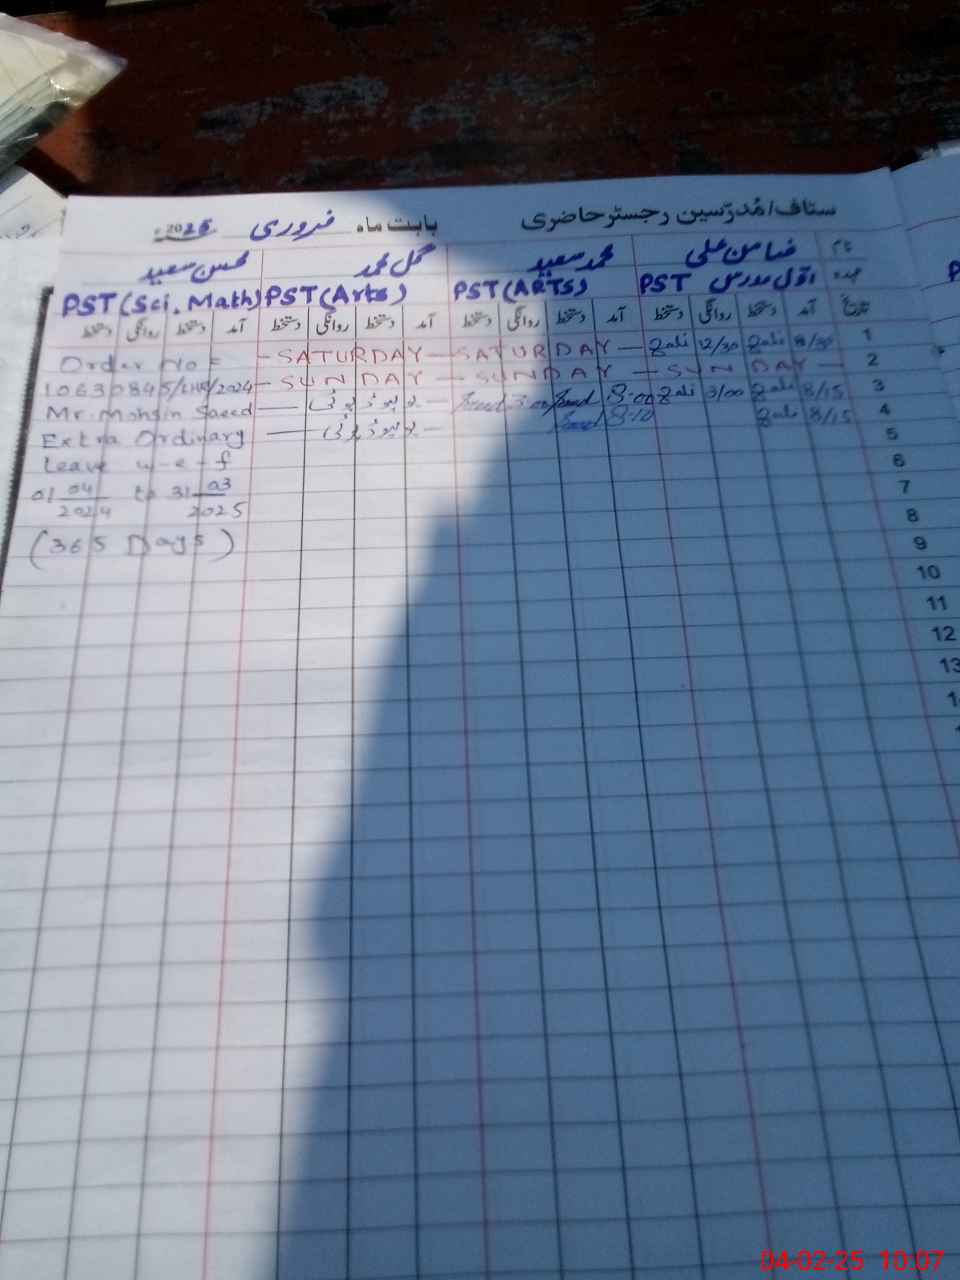 سٹاف/مُدرّسین رجسٹر حاضری بابت ماہ فروری 2025ء
نام ضامن علی محمد سعید گل محمد محسن سعید
عہدہ اوّل مدرس PST PST (ARTS) PST (Arts) PST (Sci, Math)
تاریخ آمد دستخط روانگی دستخط آمد دستخط روانگی دستخط آمد دستخط روانگی دستخط آمد دستخط روانگی دستخط
1 8/30 Zali 12/30 Zali — SATURDAY — SATURDAY —
2 — SUNDAY — SUNDAY — SUNDAY —
3 8/15 Zali 3/00 Zali 8:00 3:00
4 8/15 Zali 8:10
5
6
7
8
9
10
11
12
13
Order No =
10630845/LHR/2024
Mr. Mohsin Saeed
Extra Ordinary
Leave w-e-f
01 04/2024 to 31 03/2025
(365 Days)
04-02-25 10:07